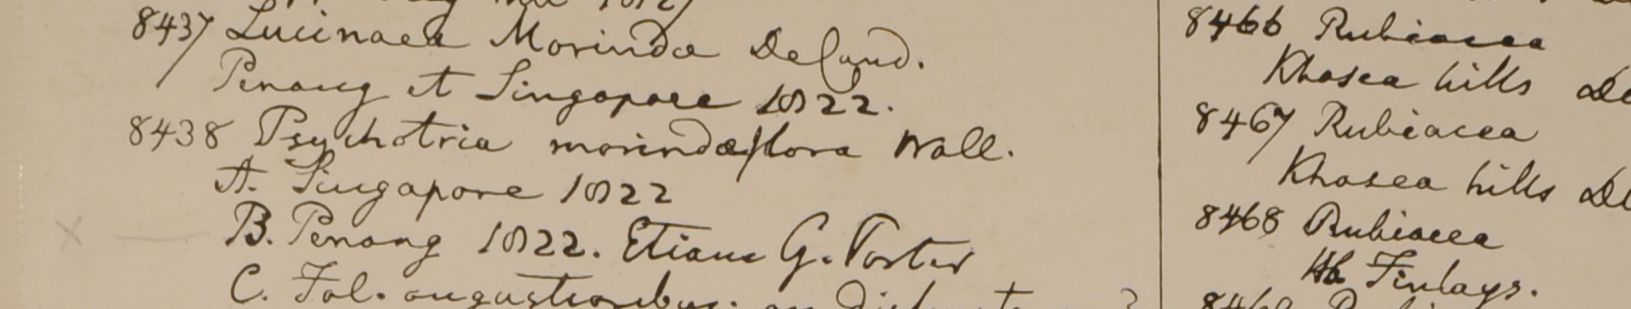 8437 Lucinaea Morindae DeCand.
Penang et Singapore 1822.
8438 Psychotria morindaeflora Wall.
A. Singapore 1822
B. Penang 1822. Etiam G. Porter
C. Fol. angustioribus. an
8466 Rubiacea
Khasea hills
8467 Rubiacea
Khasea hills
8468 Rubiacea
Hb. Finlays.